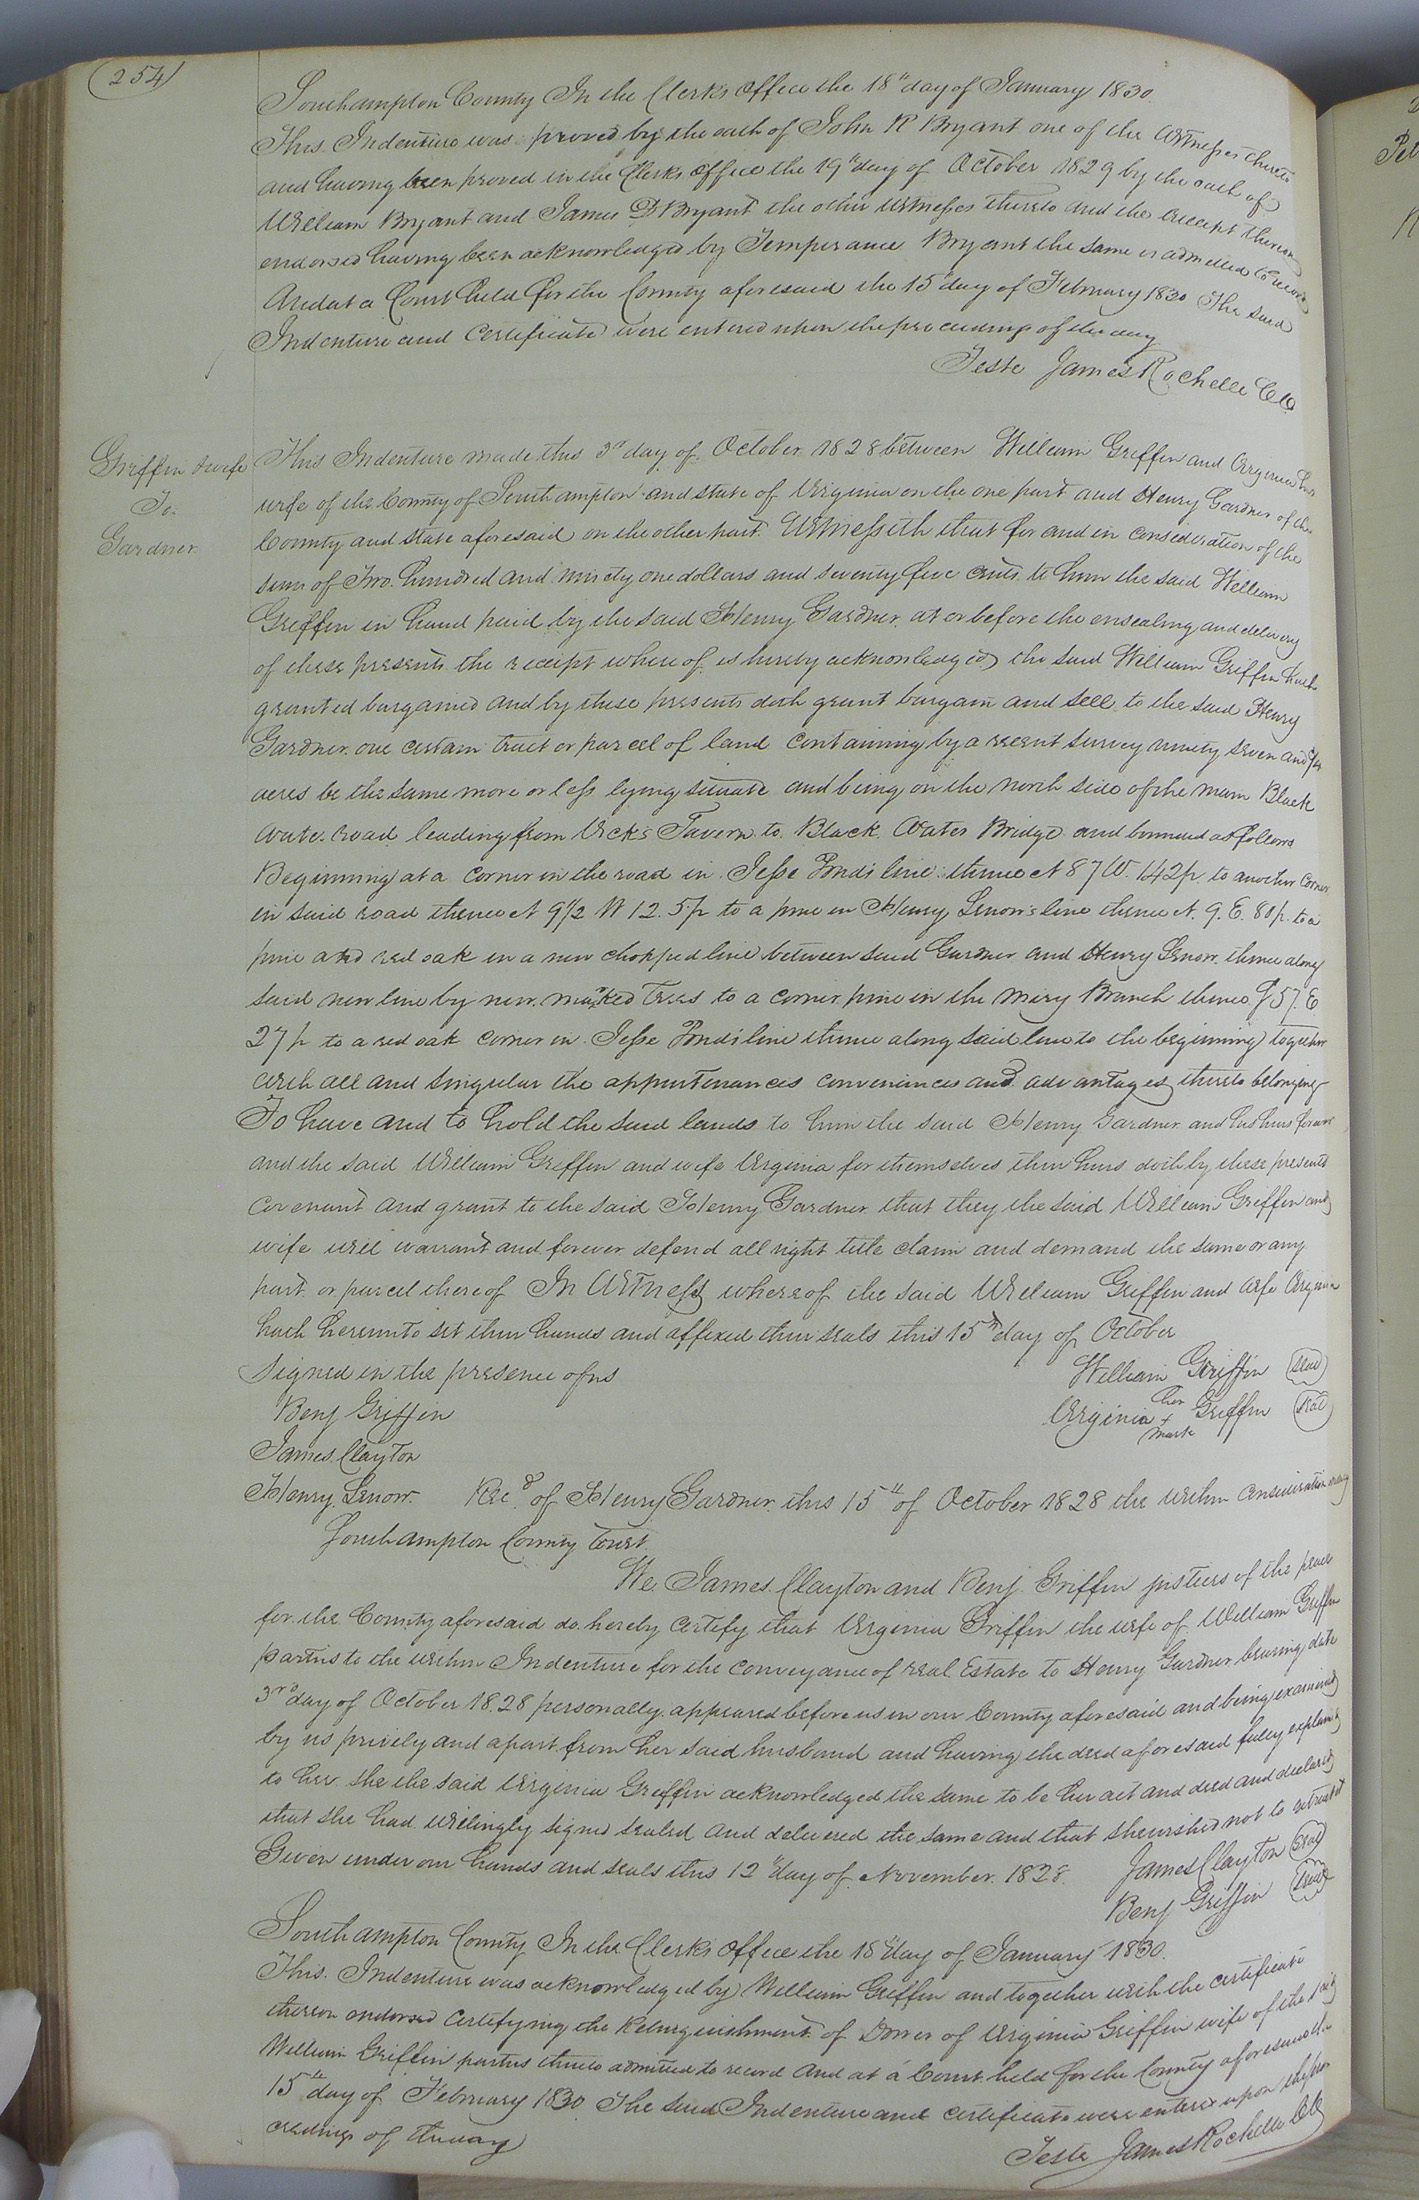 254
Southampton County In the Clerks office the 18th day of January 1830.
This Indenture was proved by the oath of John R Bryant one of the Witnesses thereto
and having been proved in the Clerks office the 19th day of October 1829 by the oath of
William Bryant and James D Bryant the other witnesses thereto and the receipt thereon
endorsed having been acknowledged by Temperance Bryant the same is admitted to record
And at a Court held for the County aforesaid the 15th day of February 1830 The said
Indenture and Certificate were entered upon the proceedings of the day
Teste James Rochelle CC
Griffin & wife
To
Gardner
This Indenture made this 3rd day of October 1828 between William Griffin and Virginia his
wife of the County of Southampton and state of Virginia on the one part and Henry Gardner of the
County and state aforesaid on the other part. Witnesseth that for and in consideration of the
sum of Two hundred and ninety one dollars and seventy five cents to him the said William
Griffin in hand paid by the said Henry Gardner at or before the ensealing and delivery
of these presents the receipt whereof is hereby acknowledged the said William Griffin hath
granted bargained and by these presents doth grant bargain and sell to the said Henry
Gardner one certain tract or parcel of land containing by a recent survey ninety seven and
acres be the same more or less lying situate and being on the north side of the main Black
Water road leading from Vick's Tavern to Black Water Bridge and bounded as follows
Beginning at a corner in the road in Jesse Ponds line thence N 87 W. 142 p. to another corner
in said road thence N 9½ W 12.5 p to a pine in Henry Lenow's line thence N. 9. E. 80 p. to a
pine and red oak in a new chopped line between said Gardner and Henry Lenow thence along
said new line by new marked trees to a corner pine in the Miry Branch thence S 57. E
27 p to a red oak corner in Jesse Ponds line thence along said line to the beginning together
with all and singular the appurtenances conveniences and advantages thereto belonging
To have and to hold the said lands to him the said Henry Gardner and his heirs forever
and the said William Griffin and wife Virginia for themselves their heirs doth by these presents
Covenant and grant to the said Henry Gardner that they the said William Griffin and
wife will warrant and forever defend all right title claim and demand the same or any
part or parcel thereof In Witness whereof the said William Griffin and wife Virginia
hath hereunto set their hands and affixed their seals this 15th day of October
Signed in the presence of us
William Griffin Seal
Benj Griffin
Virginia her + mark Griffin Seal
James Clayton
Henry Lenow. Recd of Henry Gardner this 15th of October 1828 the within consideration
Southampton County Court.
We James Clayton and Benj Griffin justices of the peace
for the County aforesaid do hereby certify that Virginia Griffin the wife of William Griffin
parties to the within Indenture for the conveyance of real Estate to Henry Gardner bearing date
3rd day of October 1828 personally appeared before us in our County aforesaid and being examined
by us privily and apart from her said husband and having the deed aforesaid fully explained
to her she the said Virginia Griffin acknowledged the same to be her act and deed and declared
that she had willingly signed sealed and delivered the same and that she wished not to retract it
Given under our hands and seals this 12th day of November 1828.
James Clayton Seal
Benj Griffin Seal
Southampton County In the Clerks office the 18th day of January 1830.
This Indenture was acknowledged by William Griffin and together with the certificate
thereon endorsed certifying the Relinquishment of Dower of Virginia Griffin wife of the said
William Griffin parties thereto admitted to record And at a Court held for the County aforesaid the
15th day of February 1830 The said Indenture and certificate were entered upon the pro
ceedings of the day
Teste James Rochelle CC